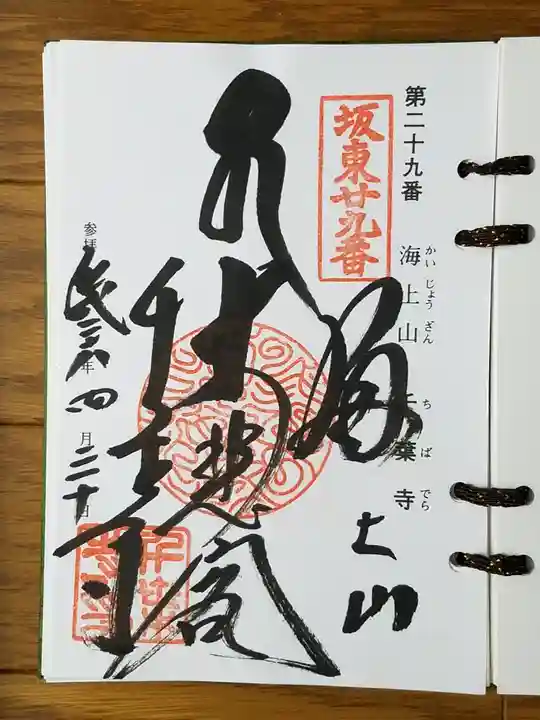 第二十九番 海上山 千葉寺
かいじょうざん ちばでら
坂東廿九番
海上山
大悲閣
千葉寺
参拝 年四月二十日